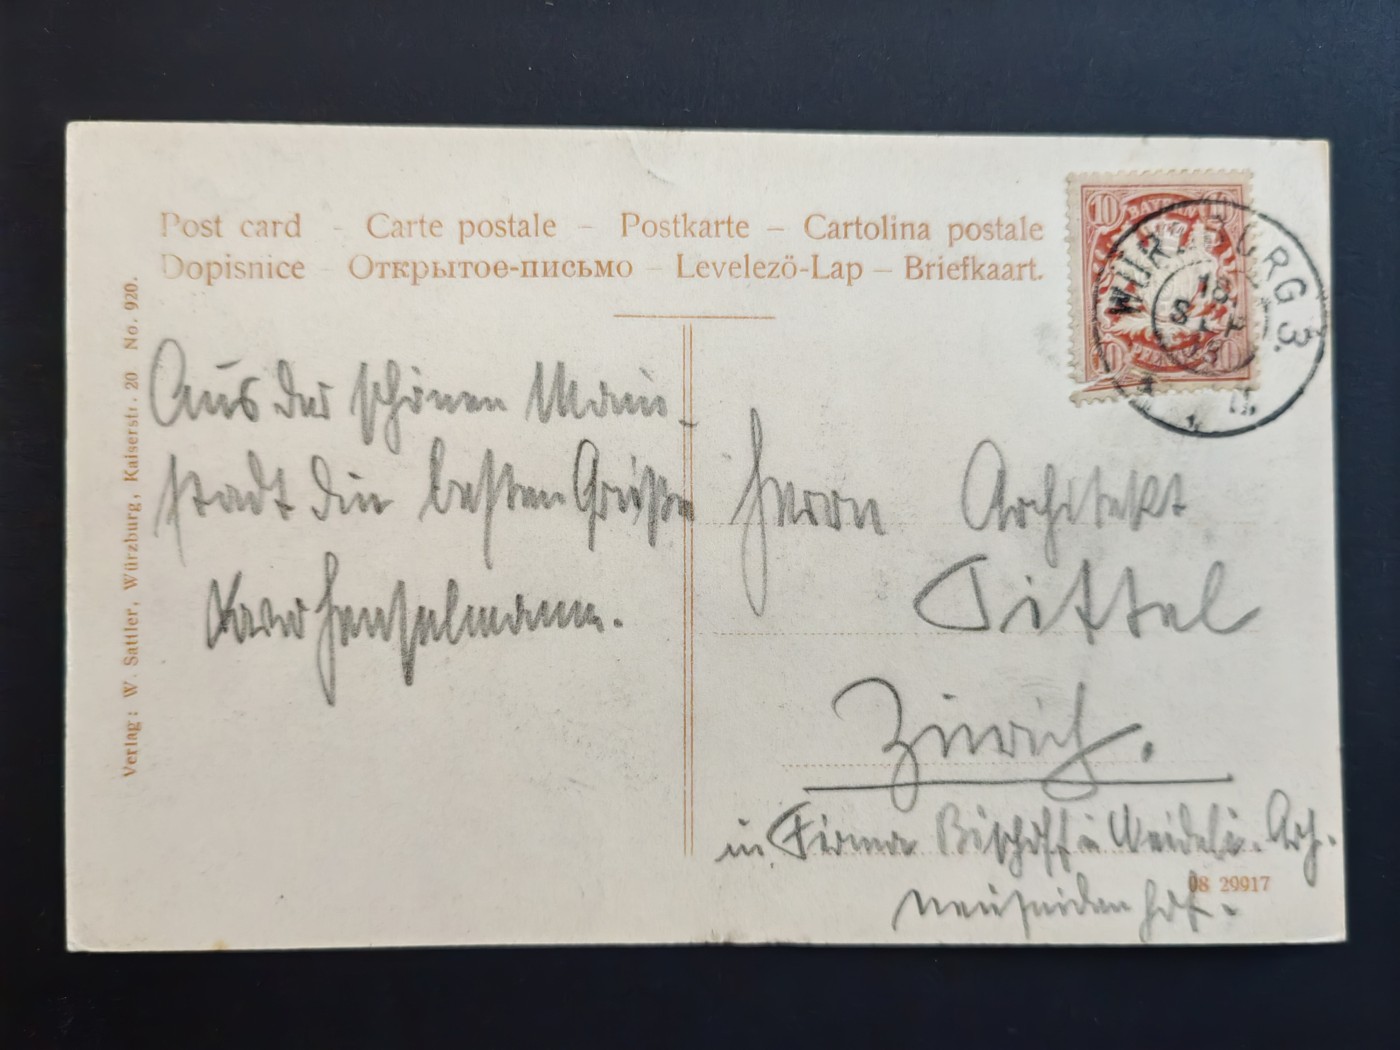 Post card – Carte postale – Postkarte – Cartolina postale
Dopisnice – Открытое-письмо – Levelező-Lap – Briefkaart.
Verlag: W. Sattler, Würzburg, Kaiserstr. 20 No. 920.
10 BAYERN 10
WÜRZBURG 3.
18
SEP
Aus der schönen Main-
stadt die besten Grüße
Henselmann.
Herrn Architekt
Tittel
Zürich.
in Firma Bischoff u Weideli. Arch.
08 29917